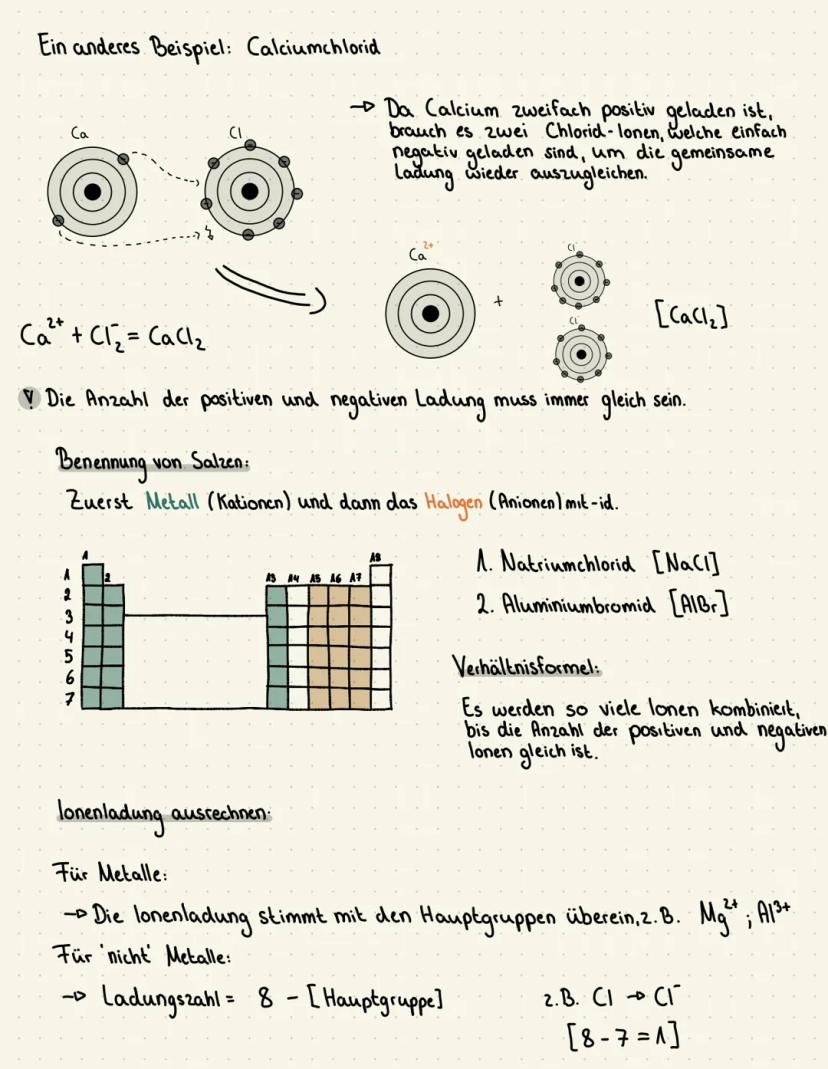 Ein anderes Beispiel: Calciumchlorid
Ca
Cl
→ Da Calcium zweifach positiv geladen ist,
brauch es zwei Chlorid-Ionen, welche einfach
negativ geladen sind, um die gemeinsame
Ladung wieder auszugleichen.
Ca²⁺
+
Cl⁻
Cl⁻
[CaCl₂]
Ca²⁺ + Cl₂⁻ = CaCl₂
! Die Anzahl der positiven und negativen Ladung muss immer gleich sein.
Benennung von Salzen:
Zuerst Metall (Kationen) und dann das Halogen (Anionen) mit -id.
1
2
A3 A4 A5 A6 A7
A8
1
2
3
4
5
6
7
1. Natriumchlorid [NaCl]
2. Aluminiumbromid [AlBr]
Verhältnisformel:
Es werden so viele Ionen kombiniert,
bis die Anzahl der positiven und negativen
Ionen gleich ist.
Ionenladung ausrechnen:
Für Metalle:
→ Die Ionenladung stimmt mit den Hauptgruppen überein, z.B. Mg²⁺ ; Al³⁺
Für 'nicht' Metalle:
→ Ladungszahl = 8 - [Hauptgruppe]
z.B. Cl → Cl⁻
[8 - 7 = 1]